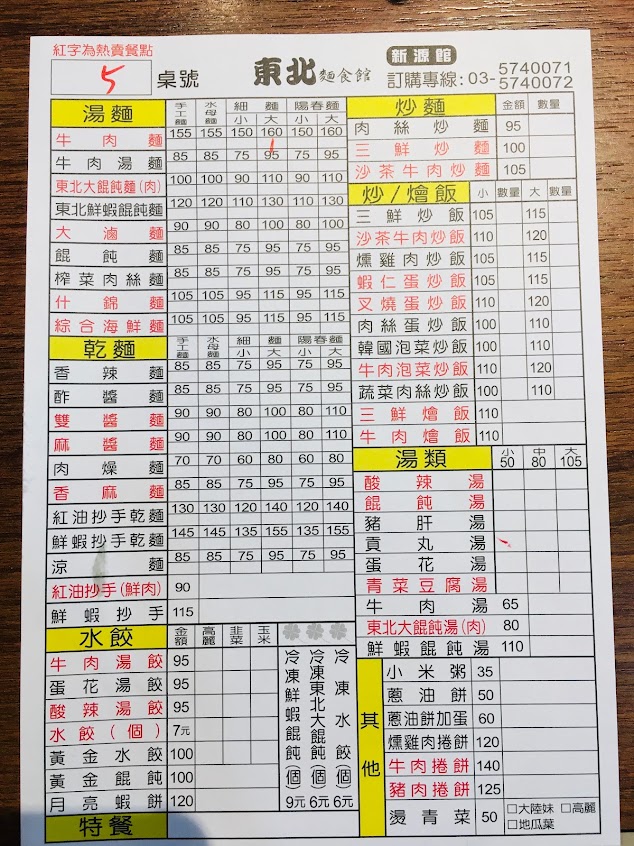 紅字為熱賣餐點
5 桌號
東北麵食館
新源館
訂購專線:03-5740071
5740072
湯麵 手工麵 水母麵 細麵 小 大 陽春麵 小 大
牛肉麵 155 155 150 160 150 160
牛肉湯麵 85 85 75 95 75 95
東北大餛飩麵(肉) 100 100 90 110 90 110
東北鮮蝦餛飩麵 120 120 110 130 110 130
大滷麵 90 90 80 100 80 100
餛飩麵 85 85 75 95 75 95
榨菜肉絲麵 85 85 75 95 75 95
什錦麵 105 105 95 115 95 115
綜合海鮮麵 105 105 95 115 95 115
乾麵 手工麵 水母麵 細麵 小 大 陽春麵 小 大
香辣麵 85 85 75 95 75 95
酢醬麵 85 85 75 95 75 95
雙醬麵 90 90 80 100 80 110
麻醬麵 90 90 80 100 80 110
肉燥麵 70 70 60 80 60 80
香麻麵 85 85 75 95 75 95
紅油抄手乾麵 130 130 120 140 120 140
鮮蝦抄手乾麵 145 145 135 155 135 155
涼麵 85 85 75 95 75 95
紅油抄手(鮮肉) 90
鮮蝦抄手 115
水餃 金額 高麗 韭菜 玉米
牛肉湯餃 95
蛋花湯餃 95
酸辣湯餃 95
水餃(個) 7元
黃金水餃 100
黃金餛飩 100
月亮蝦餅 120
冷凍鮮蝦餛飩(個) 9元
冷凍東北大餛飩(個) 6元
冷凍水餃(個) 6元
特餐
炒麵 金額 數量
肉絲炒麵 95
三鮮炒麵 100
沙茶牛肉炒麵 105
炒/燴飯 小 數量 大 數量
三鮮炒飯 105 115
沙茶牛肉炒飯 110 120
燻雞肉炒飯 105 115
蝦仁蛋炒飯 105 115
叉燒蛋炒飯 110 120
肉絲蛋炒飯 100 110
韓國泡菜炒飯 100 110
牛肉泡菜炒飯 110 120
蔬菜肉絲炒飯 100 110
三鮮燴飯 110
牛肉燴飯 110
湯類 小50 中80 大105
酸辣湯
餛飩湯
豬肝湯
貢丸湯
蛋花湯
青菜豆腐湯
牛肉湯 65
東北大餛飩湯(肉) 80
鮮蝦餛飩湯 110
其他
小米粥 35
蔥油餅 50
蔥油餅加蛋 60
燻雞肉捲餅 120
牛肉捲餅 140
豬肉捲餅 125
燙青菜 50 □大陸妹 □高麗
□地瓜葉